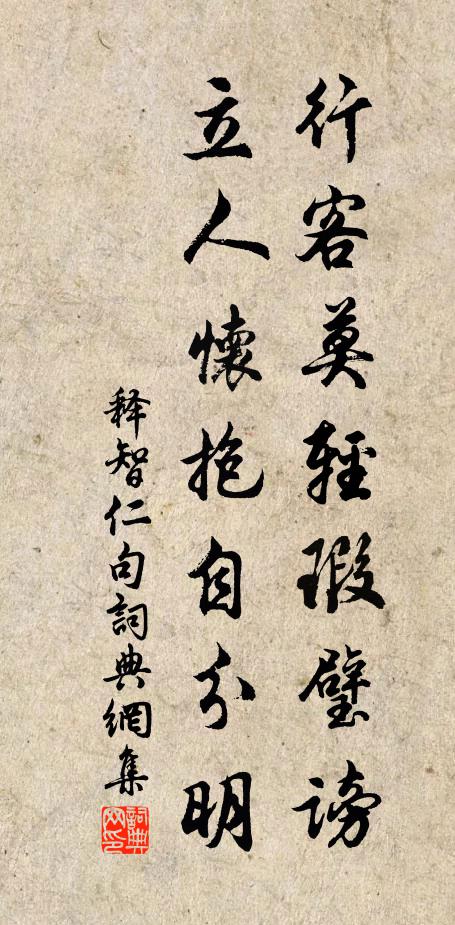 行客莫輕瑕璧謗
立人懷抱自分明
釋智仁句詞典網集
詞典网印